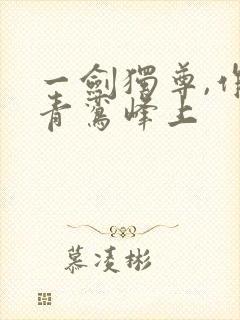 一劍獨尊,
青鸞峰上
慕凌彬